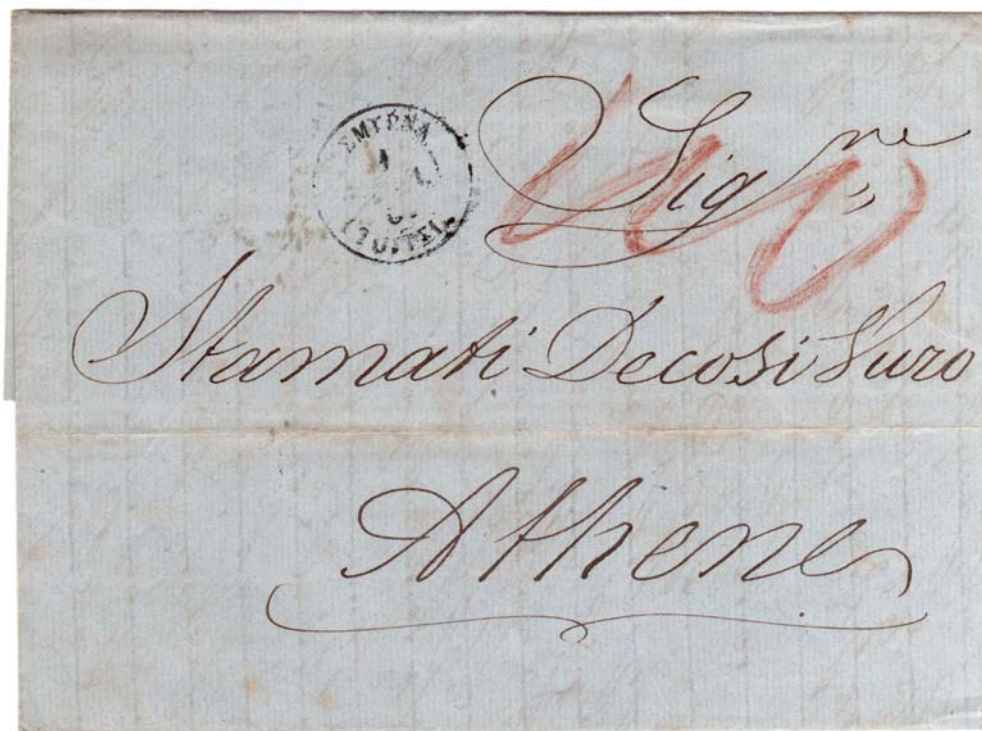 ΣΜΥΡΝΑ
Sig^re
Stamati Decosi Vuro
Athene